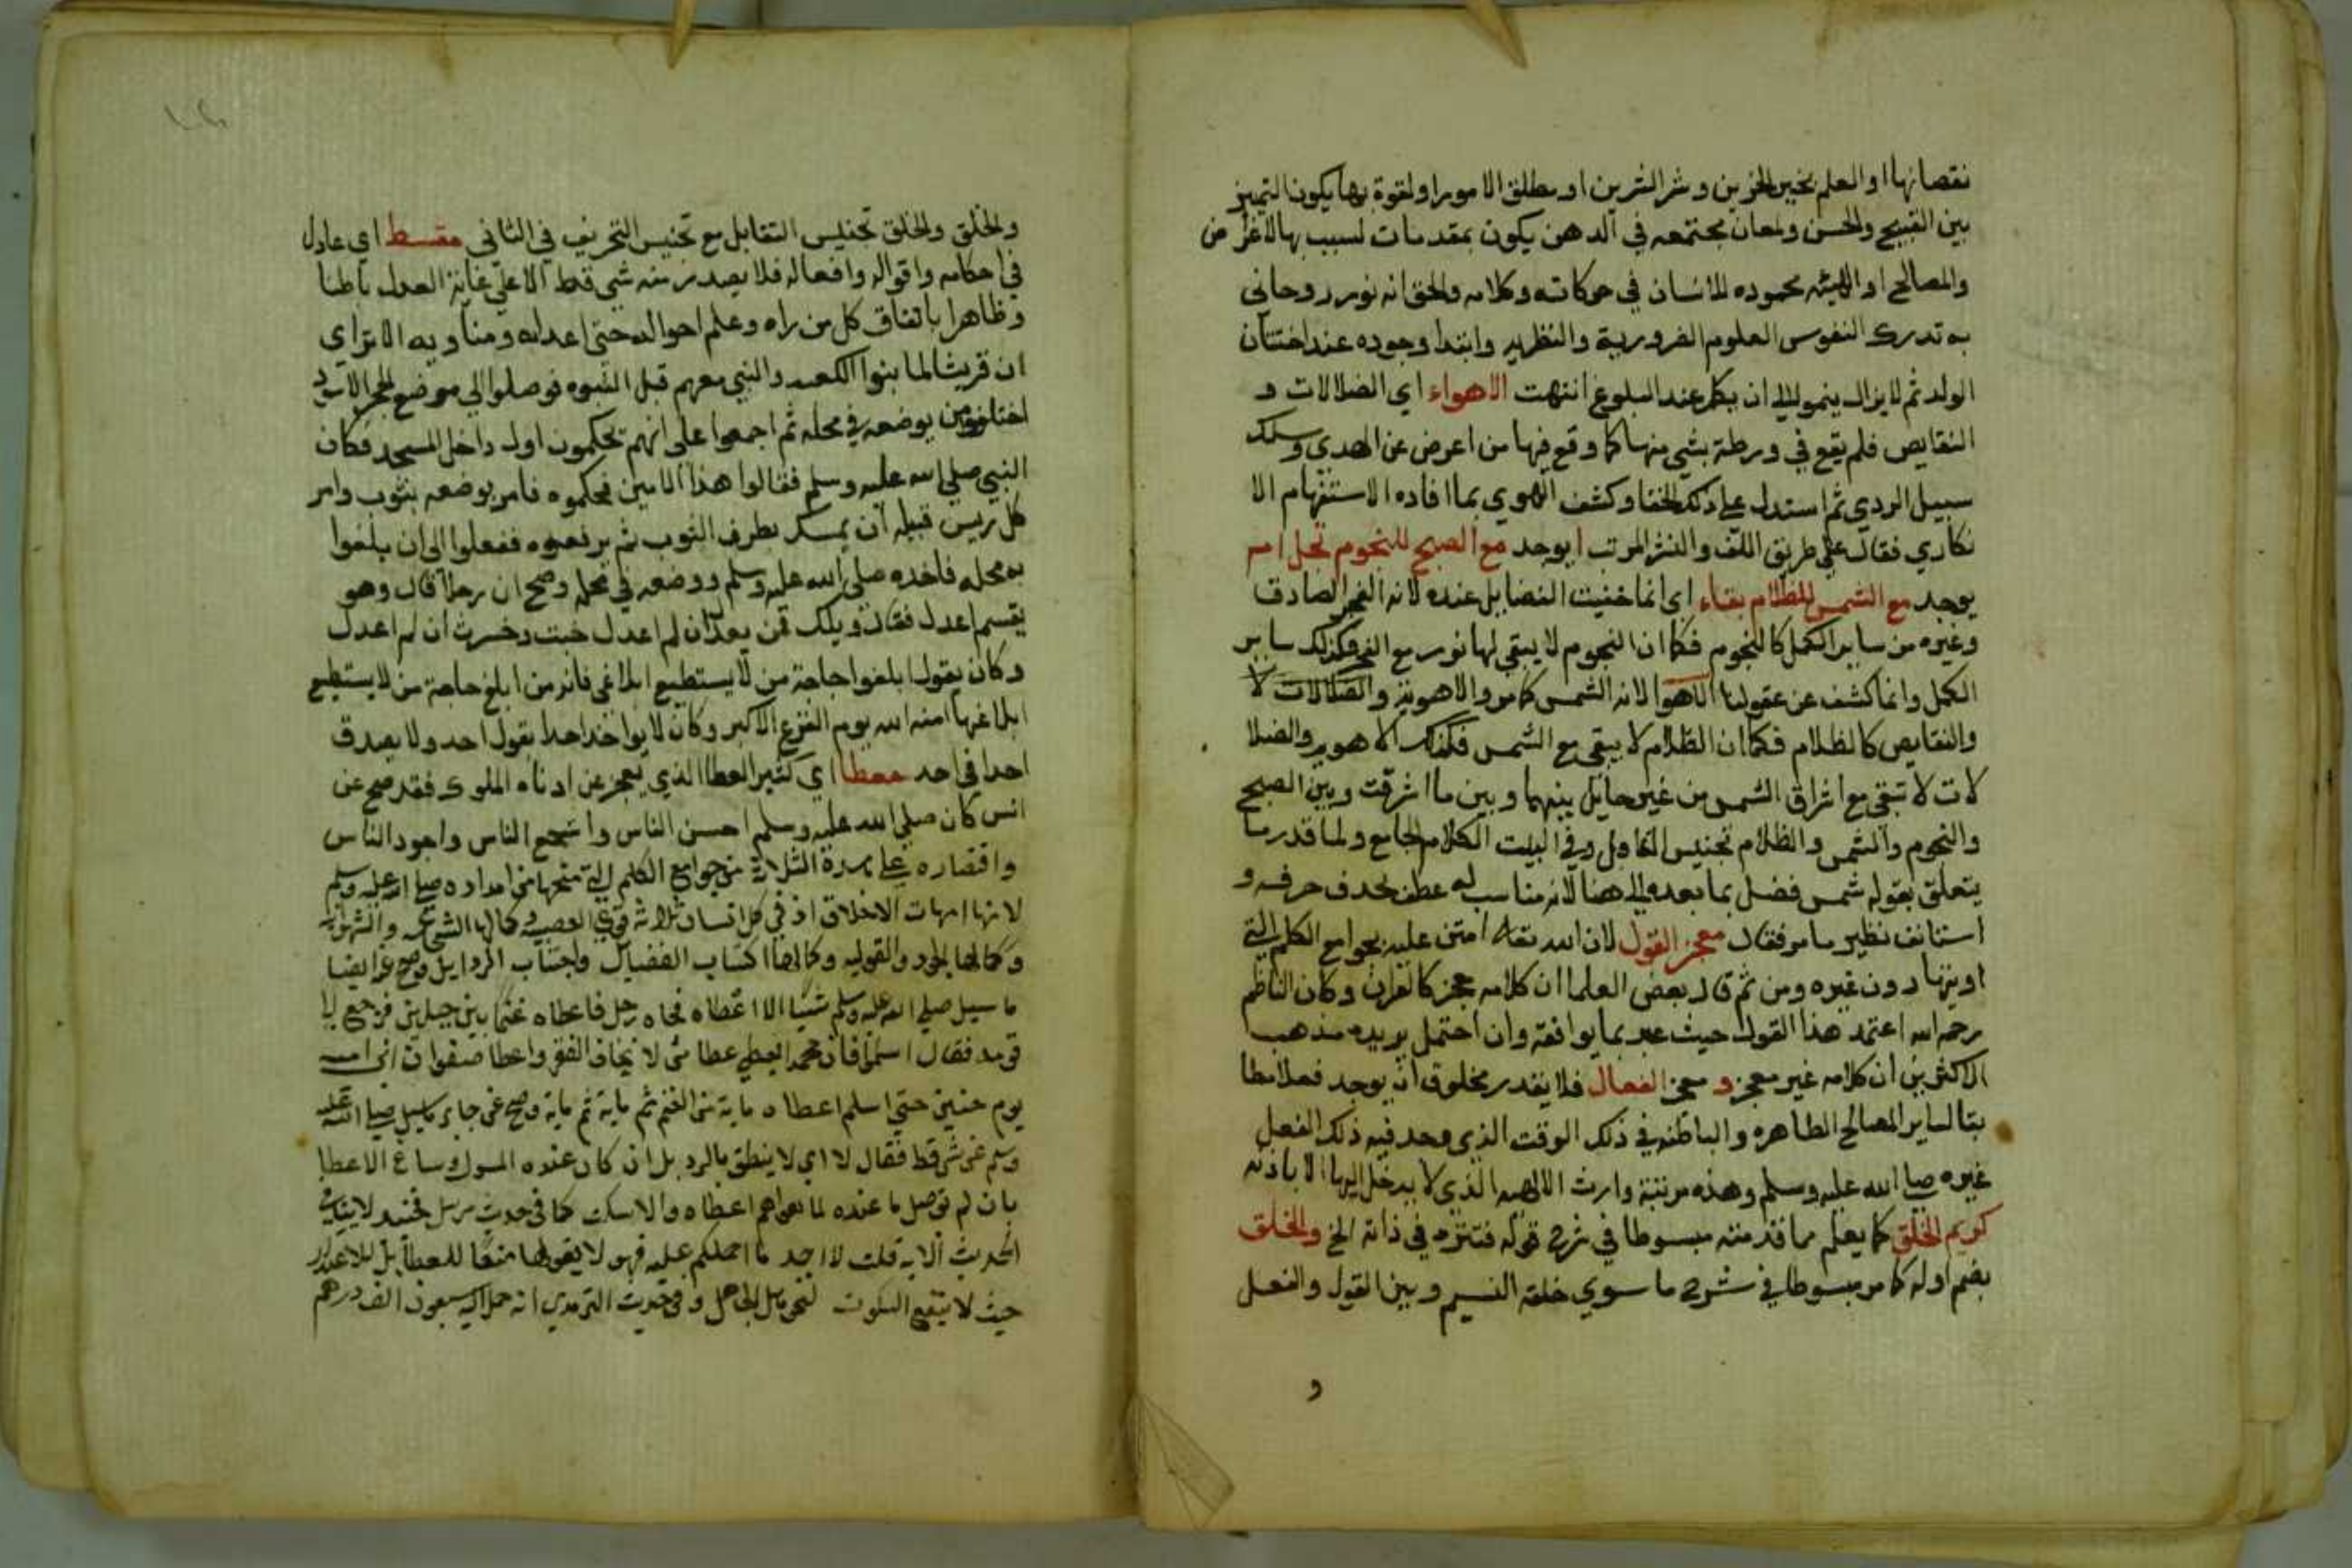 نقصانها او العلم بخير الخيرين وشر الشرين او مطلق الامور او لقوة بها يكون التمييز
بين القبيح والحسن ولمعان مجتمعه في الدهن يكون بمقدمات لسبب بها الاغراض
والمصالح او الهيئه محموده للانسان في حركاته وكلامه والحق انه نور روحاني
به تدرك النفوس العلوم الضرورية والنظريه وابتدا وجوده عند اختتان
الولد ثم لا يزال ينمو الي ان يكمل عند البلوغ انتهت الاهواء اي الضلالات و
النقايص فلم يقع في ورطة بشي منها كما وقع فيها من اعرض عن الهدي وسلك
سبيل الردي ثم استدل علي ذلك الخفا وكشف الهوي بما افاده الاستفهام الا
نكاري فقال علي طريق اللف والنشر المرتب ايوجد مع الصبح للنجوم تجل ام
يوجد مع الشمس للظلام بقاء اي انما خفيت الفضايل عنده لانه الفجر الصادق
وغيره من ساير الكمل كالنجوم فكما ان النجوم لا يبقي لها نور مع الفجر فكذلك ساير
الكمل وانما كشف عن عقولنا الاهوا لانه الشمس كامر والاهوية والضلالات لا
والنقايص كالظلام فكما ان الظلام لا يبقي مع الشمس فكذلك الاهويه والضلا
لات لا تبقي مع اشراق الشمس من غير حايل بينهما وبين ما اشرقت وبين الصبح
والنجوم والشمس والظلام تجنيس التقابل وفي البيت الكلام الجامع ولما قدر ما
يتعلق بقوله شمس فضل بما بعده الي هنا لانه مناسب له عطف بحدف حرفه و
استانف نظير ما مر فقال معجز القول لان الله تعالي امتن عليه بجوامع الكلم التي
اوتيها دون غيره ومن ثم قال بعض العلما ان كلامه معجز كالقران وكان الناظم
رحمه الله اعتمد هذا القول حيث عبر بما يوافقه وان احتمل يريده مذهب
الاكثرين ان كلامه غير معجز و معجز الفعال فلا يقدر مخلوق ان يوجد فعلا مطا
بقا لساير المصالح الظاهره والباطنه في ذلك الوقت الذي وجد فيه ذلك الفعل
غيره صلي الله عليه وسلم وهذه مرتبة وارث الالهيه الذي لا يدخل اليها الا باذنه
كريم الخلق كما يعلم مما قدمته مبسوطا في شرح قوله فتنزه في ذاته الخ والخلق
بضم اوله كما مر مبسوطا في شرح ما سوي خلقه النسيم وبين القول والفعل
و
والخلق والخلق تجنيس التقابل مع تجنيس التحريف في الثاني مقسط اي عادل
في احكامه واقواله وافعاله فلا يصدر منه شي قط الا علي غاية العدل باطنا
وظاهرا باتفاق كل من راه وعلم احواله حتي اعدايه ومناويه الا تراي
ان قريشا لما بنوا الكعبه والنبي معهم قبل النبوه فوصلوا الي موضع الحجر الاسود
اختلفوا من يوضعه في محله ثم اجمعوا علي انهم يحكمون اول داخل المسجد فكان
النبي صلي الله عليه وسلم فقالوا هذا الامين فحكموه فامر بوضعه بثوب وامر
كل ريس قبيله ان يمسك بطرف الثوب ثم يرفعوه ففعلوا الي ان بلغوا
به محله فاخذه صلي الله عليه وسلم ووضعه في محله وصح ان رجلا قال وهو
يقسم اعدل فقال ويلك فمن يعدل ان لم اعدل خبت وخسرت ان لم اعدل
وكان يقول ابلغوا حاجة من لا يستطيع ابلاغي فانه من ابلغ حاجة من لا يستطيع
ابلاغها امنه الله يوم الفزع الاكبر وكان لا يواخد احدا بقول احد ولا يصدق
احدا في احد معطا اي كثير العطا الذي يعجز عن ادناه الملوك فقد صح عن
انس كان صلي الله عليه وسلم احسن الناس واشجع الناس واجود الناس
واقتصاره علي هذه الثلاث من جوامع الكلم التي منحها من امداده صلي الله عليه وسلم
لانها امهات الاخلاق اذ في كل انسان ثلاثة قوي الغضبيه وكمالها الشجاعه والشهوانيه
وكمالها الجود والقوليه وكمالها اكتساب الفضايل واجتناب الردايل وصح عنه ايضا
ما سيل صلي الله عليه وسلم شيئا الا اعطاه فجاه رجل فاعطاه غنما بين جبلين فرجع الي
قومه فقال اسلموا فان محمد ايعطي عطا من لا يخاف الفقر واعطا صفوان ابن اميه
يوم حنين حتي اسلم اعطاه ماية من الغنم ثم ماية ثم ماية وصح عن جابر ما سيل صلي الله عليه
وسلم عن شي قط فقال لا اي لا ينطق بالرد بل ان كان عنده المسول وساغ الاعطا
بان لم توصل ما عنده لما هو اهم اعطاه والا سكت كما في حديث مرسل
الحديث الايه قلت لا اجد ما احملكم عليه فهو لا يقولها منعا للعطا بل للاعتذار
حيث لا ينفع السكوت وفي حديث الترمدي انه حمل اليه سبعون الف درهم